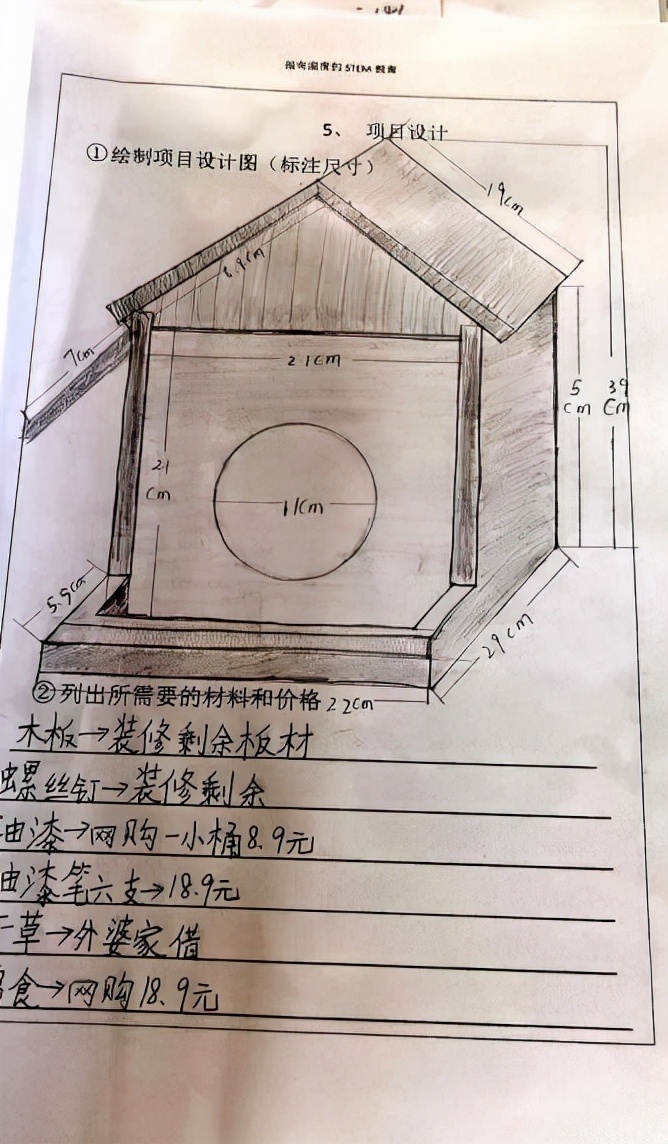 5、 项目设计
①绘制项目设计图（标注尺寸）
19cm
6.9cm
7cm
21cm
5cm
39cm
21cm
11cm
5.9cm
29cm
②列出所需要的材料和价格
22cm
木板→装修剩余板材
螺丝钉→装修剩余
油漆→网购一小桶8.9元
油漆笔六支→18.9元
草→外婆家借
食→网购18.9元